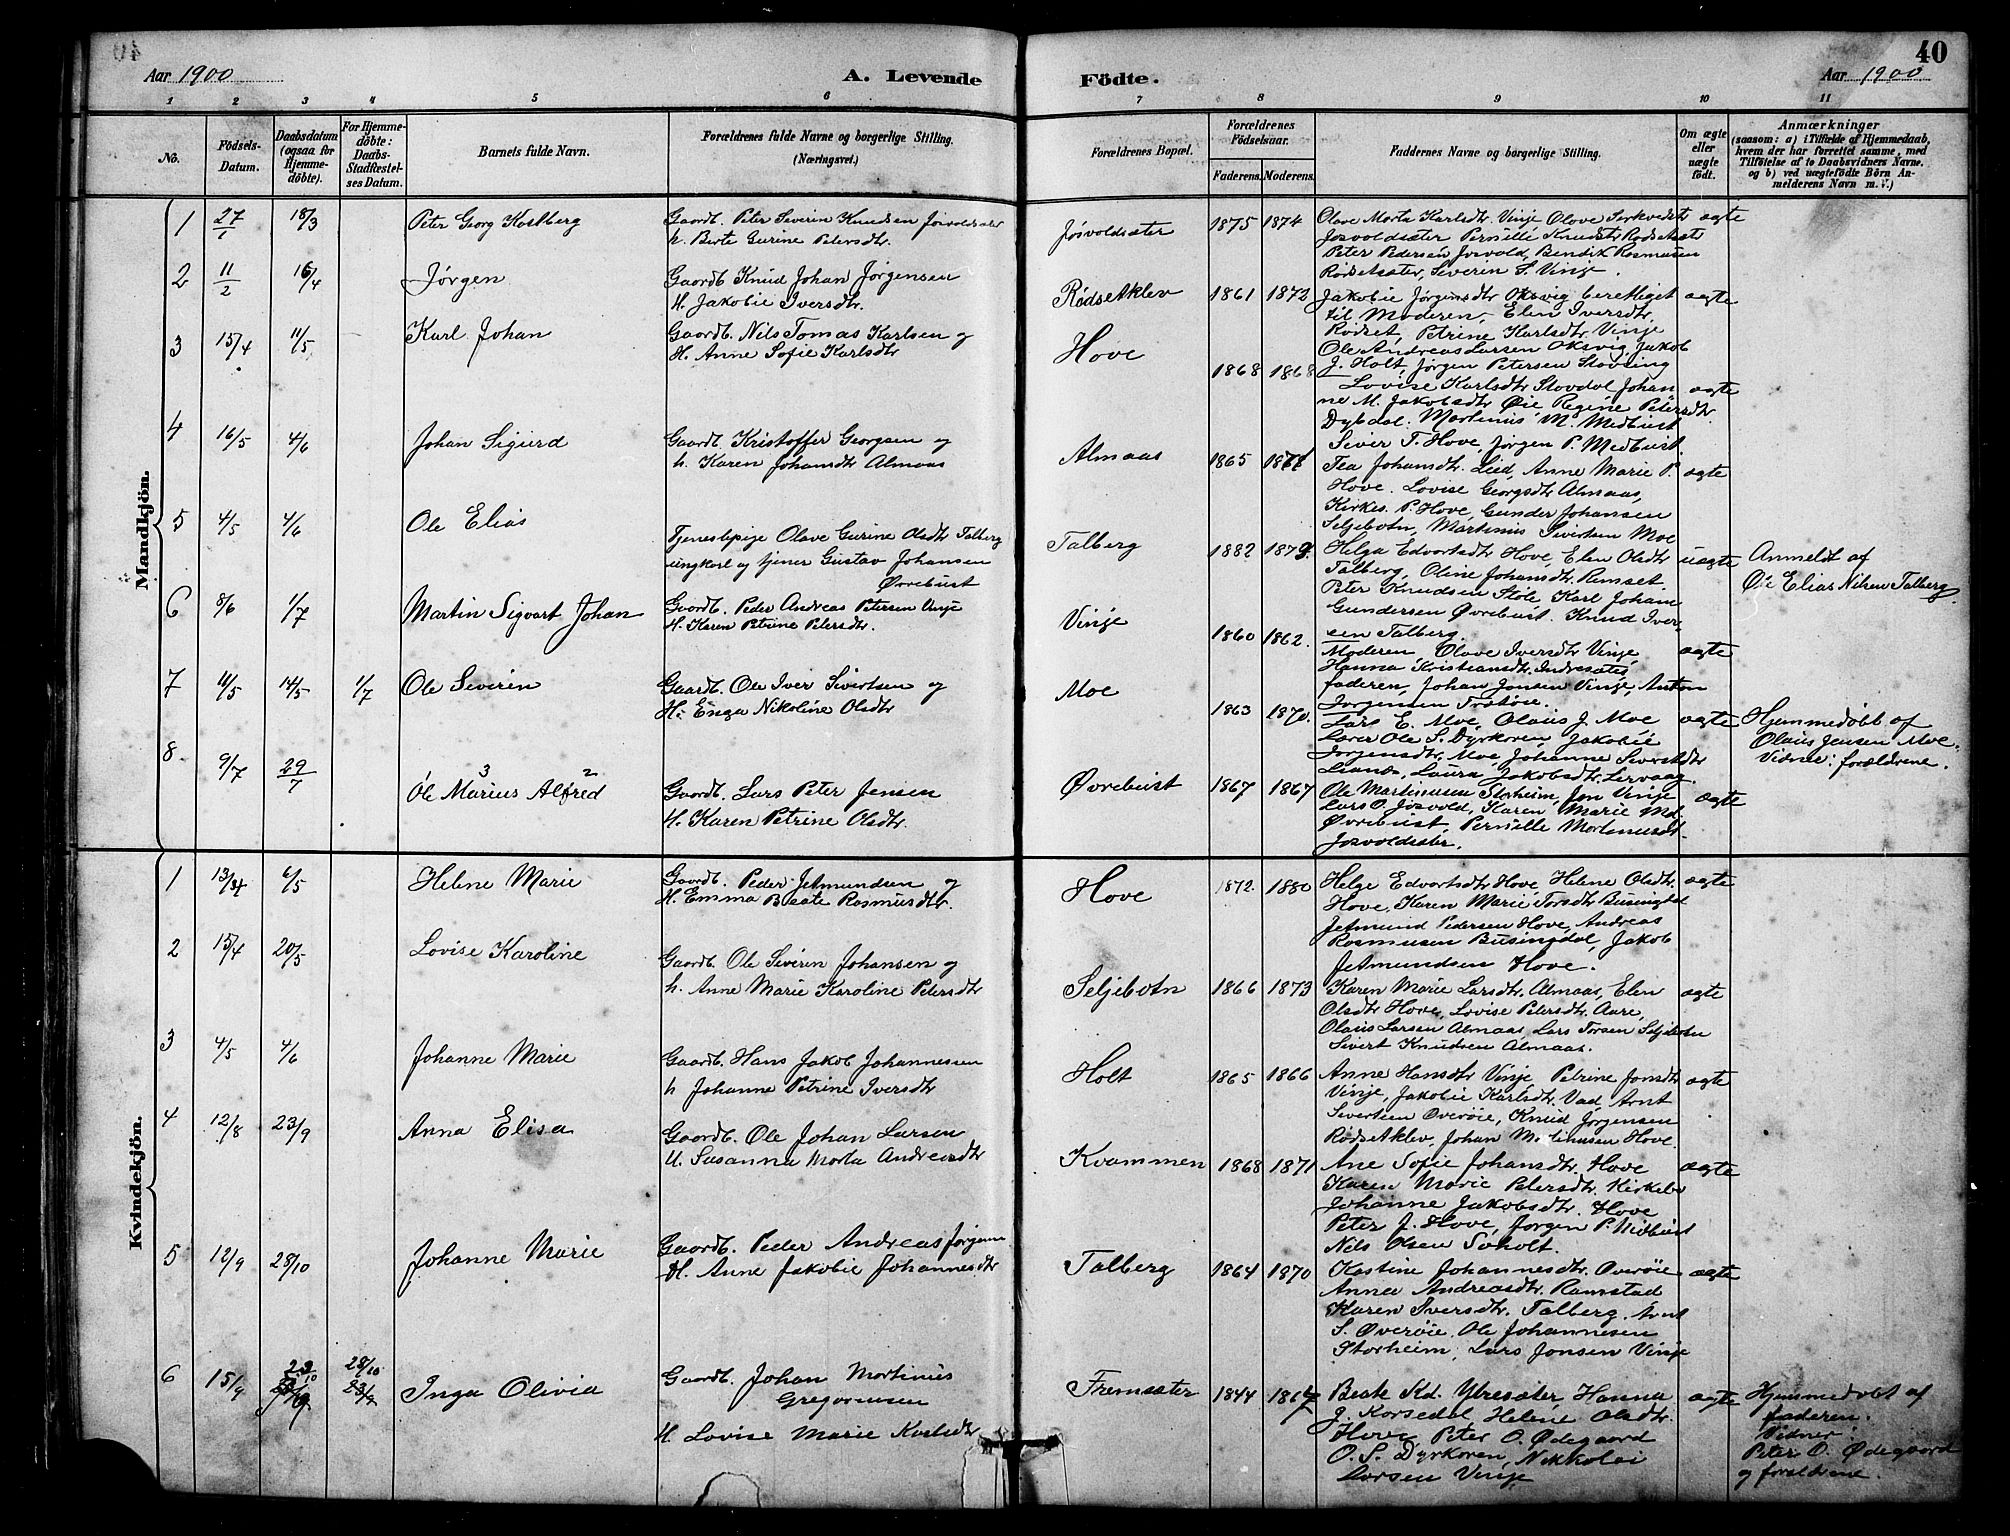 40
Aar 1900
A. Levende Födte.
Aar 1900
1 2 3 4 5 6 7 8 9 10 11
No.
Födsels-Datum.
Daabsdatum (ogsaa for Hjemme-döbte).
For Hjemme-döbte: Daabs-Stadfæstel-ses Datum.
Barnets fulde Navn.
Forældrenes fulde Navne og borgerlige Stilling. (Næringsvei.)
Forældrenes Bopæl.
Forældrenes Födselsaar.
Faderens. Moderens.
Faddernes Navne og borgerlige Stilling.
Om ægte eller uægte födt.
Anmærkninger
(saasom: a) i Tilfælde af Hjemmedaab,
hvem der har forrettet samme, med
Tilföielse af to Daabsvidners Navne.
og b) ved uægtefödte Börn An-
melderens Navn m. V.)
Mandkjön.
1 27/1 18/3 Peter Georg Kostberg
Gaardb. Peter Severin Knudsen Jøsvoldsæter
h. Berte Gurine Petersdtr.
Jøsvoldsæter 1875 1874
Olave Marta Karlsdtr. Vinje Olave
Jøsvoldsæter Pernille Knudsdtr Rødsetsæt
Peter Pedersen Jøsvold, Bendik Rasmusen
Rødsetsæter, Severin S. Vinje.
ægte
2 11/2 16/4 Jørgen
Gaardb Knud Johan Jørgensen
H. Jakobie Iversdtr.
Rødsetklev 1861 1872
Jakobie Jørgensdtr Oksvig berettiget
til Moderen, Elen Iversdtr,
Rødset, Petrine Karlsdtr Vinje
Ole Andreas Larsen Oksvig, Jakob
J. Holt, Jørgen Petersen
ægte
3 15/4 11/5 Karl Johan
Gaardb. Nils Tomas Karlsen og
H. Anne Sofie Karlsdtr
Hove 1868 1868
Lovise Karlsdtr Stavdal Johan
ne M. Jakobsdtr Øie Regine Petersdtr.
Dybdal. Martinus M. Medbust
Siver T. Hove, Jørgen P. Medbust.
ægte
4 16/5 4/6 Johan Sigurd
Gaardb. Kristoffer Georgsen og
h. Karen Johansdtr Almaas
Almaas 1865
Tea Johansdtr. Lied, Anne Marie P.
Hove. Lovise Georgsdtr Almaas,
Kirkes. P. Hove, Gunder Johansen
Seljebotn, Martinus Sivertsen Moe
ægte
5 4/5 4/6 Ole Elias
Tjenestepige Olave Gurine Olsdtr Talberg
ungkarl og tjener Gustav Johansen
Øvrebust
Talberg 1882 1879
Helga Edvartsdtr Hove, Elen Olsdtr
Talberg, Oline Johansdtr. Remset
Peter Knudsen Støle Karl Johan
Gundersen Øvrebust. Knud Iver-
sen Talberg.
uægte
Anmeldt af
Ole Elias Nilsen Talberg.
6 8/6 1/7 Martin Sigvart Johan
Gaardb. Peder Andreas Petersen Vinje
H. Karen Petrine Petersdtr.
Vinje 1860 1862.
Moderen, Olave Iversdtr Vinje,
Hanna Kristiansdtr. Indresæter,
faderen, Johan Jonsen Vinje, Anton
Jørgensen
ægte
7 11/5 14/5 1/7 Ole Severin
Gaardb. Ole Iver Sivertsen og
H. Enga Nikoline Olsdtr
Moe 1863 1870.
Lars E. Moe, Olaus J. Moe
Lærer Ole S. Dyrkoren, Jakobie
Jørgensdtr. Moe, Johanne Sivertsdtr
Lianes, Laura Jakobsdtr. Lervaag.
ægte
Hjemmedøbt af
Olaus Jensen Moe.
Vidne: forældrene.
8 9/7 29/7 Ole Marius 3 Alfred 2
Gaardb. Lars Peter Jensen
H. Karen Petrine Olsdtr.
Øvrebust 1867 1867
Ole Martinusen Storheim, Jon Vinje
Lars O. Jøsvold, Karen Marie Md.
Øvrebust, Pernille Mortinusdt
Jøsvoldsæter.
ægte
Kvindekjön.
1 13/3 6/5 Helene Marie
Gaardb. Peder Jetmundsen og
H. Emma Beate Rasmusdtr.
Hove 1872. 1880
Helge Edvartsdtr Hove, Helene Olsdtr.
Hove, Karen Marie Torsdtr Busingdal
Jetmund Pedersen Hove, Andreas
Rasmusen Busingdal, Jakob
Jetmundsen Hove.
ægte
2 15/4 20/5 Lovise Karoline
Gaardb. Ole Siverin Johansen og
h. Anne Marie Karoline Petersdtr
Seljebotn 1866 1873
Karen Marie Larsdtr. Almaas, Elen
Olsdtr Hove, Lovise Petersdtr. Aare,
Olaus Larsen Almaas, Lars Torsen Seljebotn
Sivert Knudsen Almaas.
ægte
3 4/5 4/6 Johanne Marie
Gaardb. Hans Jakob Johannessen
h Johanne Petrine Iversdtr
Holt 1865 1866
Anne Hansdtr Vinje, Petrine Jonsdtr
Vinje, Jakobie Karlsdtr. Vad, Arnt
Sivertsen Overøie, Knud Jørgensen
Rødsetklev, Johan Martinusen Hove.
ægte
4 12/8 23/9 Anna Elisa
Gaardb. Ole Johan Larsen
H. Susanna Marta Andreasdtr
Kvammen 1868 1871
Ane Sofie Johansdtr. Hove
Karen Marie Petersdtr. Kirkebø
Johanne Jakobsdtr. Hove
Peter J. Hove, Jørgen P. Midbust
Nils Olsen Søholt.
ægte
5 12/9 28/10 Johanne Marie
Gaardb. Peder Andreas Jørgensen
H. Anne Jakobie Johannesdtr
Talberg 1864 1870
Kastine Johannesdtr. Overøie
Anna Andreasdtr. Ramstad
Karen Iversdtr. Talberg, Arnt
S. Øverøie, Ole Johannesen
Storheim, Lars Jonsen Vinje
ægte
6 15/9 28/10 23/9 Inga Olivia
Gaardb. Johan Martinus
Gregoriusen
H. Lovise Marie Karlsdtr
Fremsæter 1844 1867
Beate Kd. Ytresæter, Hanna
J. Korsedal, Helene Olsdtr.
Hove Peter O. Ødegaard
O. S. Dyrkoren, Nikkolai
Larsen Vinje
ægte
Hjemmedøbt af
faderen.
Vidner:
Peter O. Ødegaard
og forældrene.